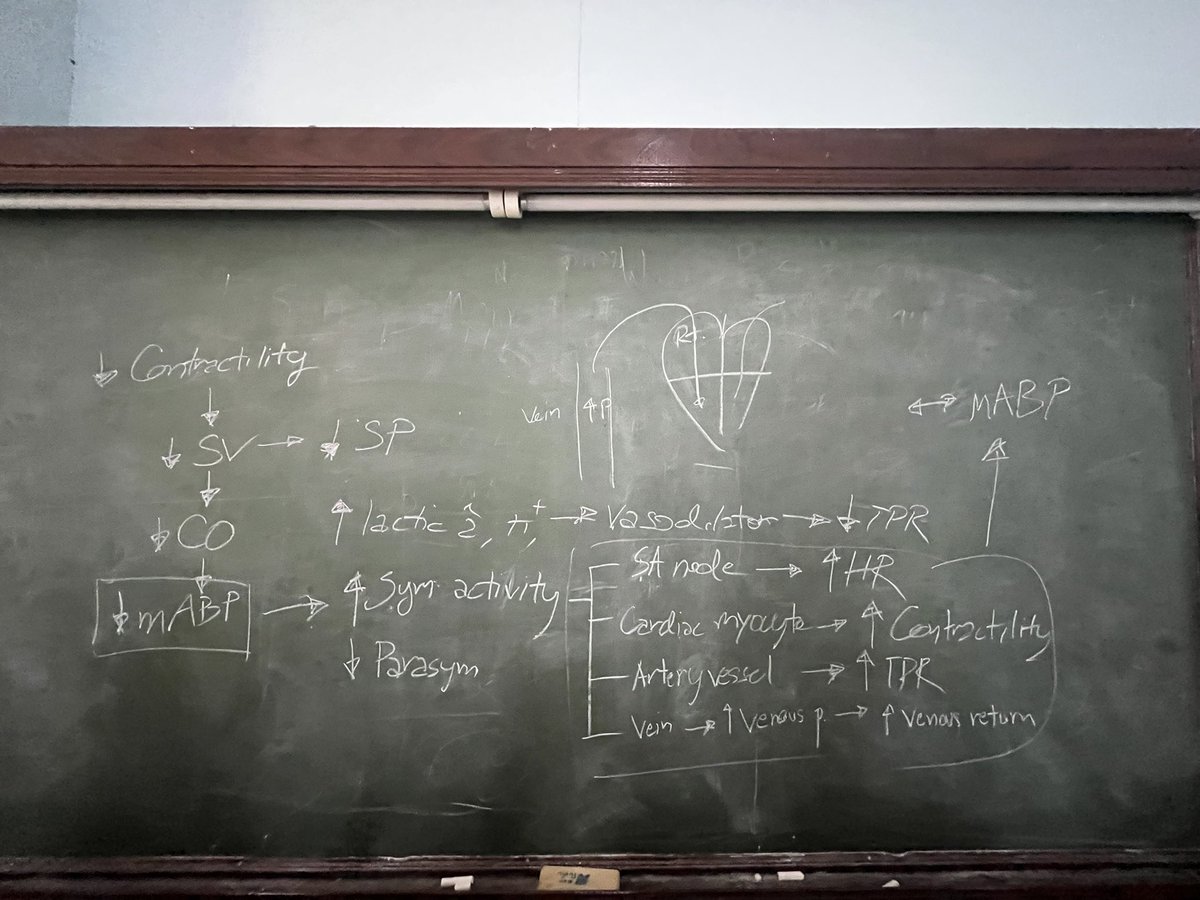 ↓ Contractility
↓
↓ SV → ↓ SP
↓
↓ CO
↓
↓ mABP → ↑ Sym activity
↓ Parasym
Rt.
Vein ↑P
↑ lactic , H⁺ → Vasodilator → ↓ TPR
SA node → ↑ HR
Cardiac myocyte → ↑ Contractility
Artery vessel → ↑ TPR
Vein → ↑ Venous p. → ↑ Venous return
↔ mABP